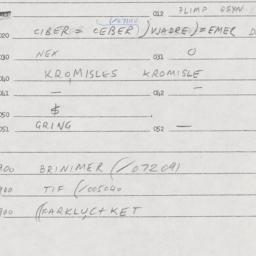 012 PLIMP OSYN
020 CIBER = CEBER) (VJADRE) = EMER D
030 NEX 031 O
040 KROMISLES KROMISLE
041 — 042 —
050 $
051 GRING 052 —
900 BRINIMER (/07209)
900 TIF (/005040
900 (FARKLYCT KET